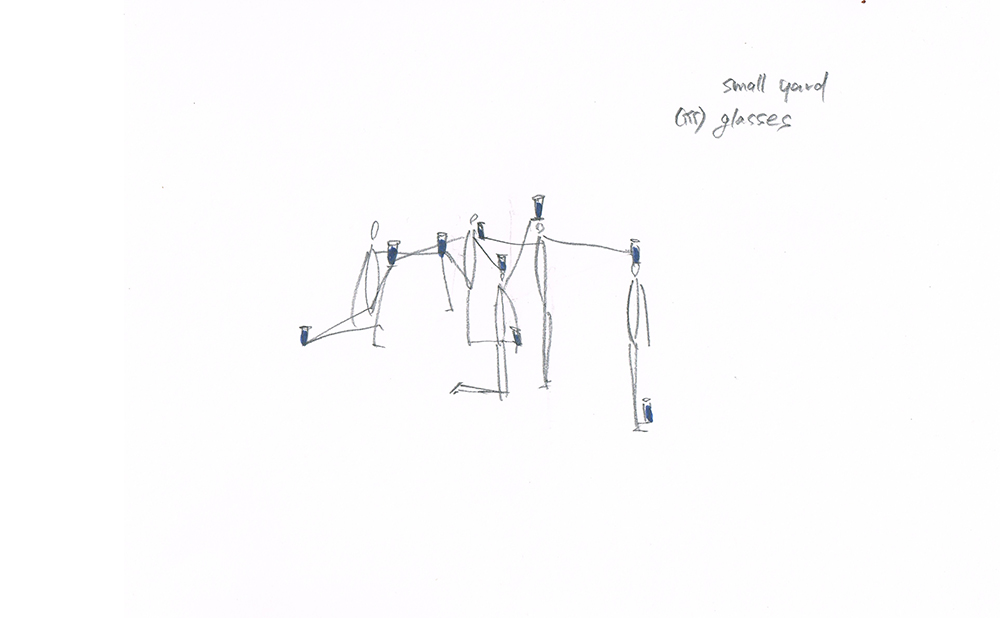 small yard
(iii) glasses